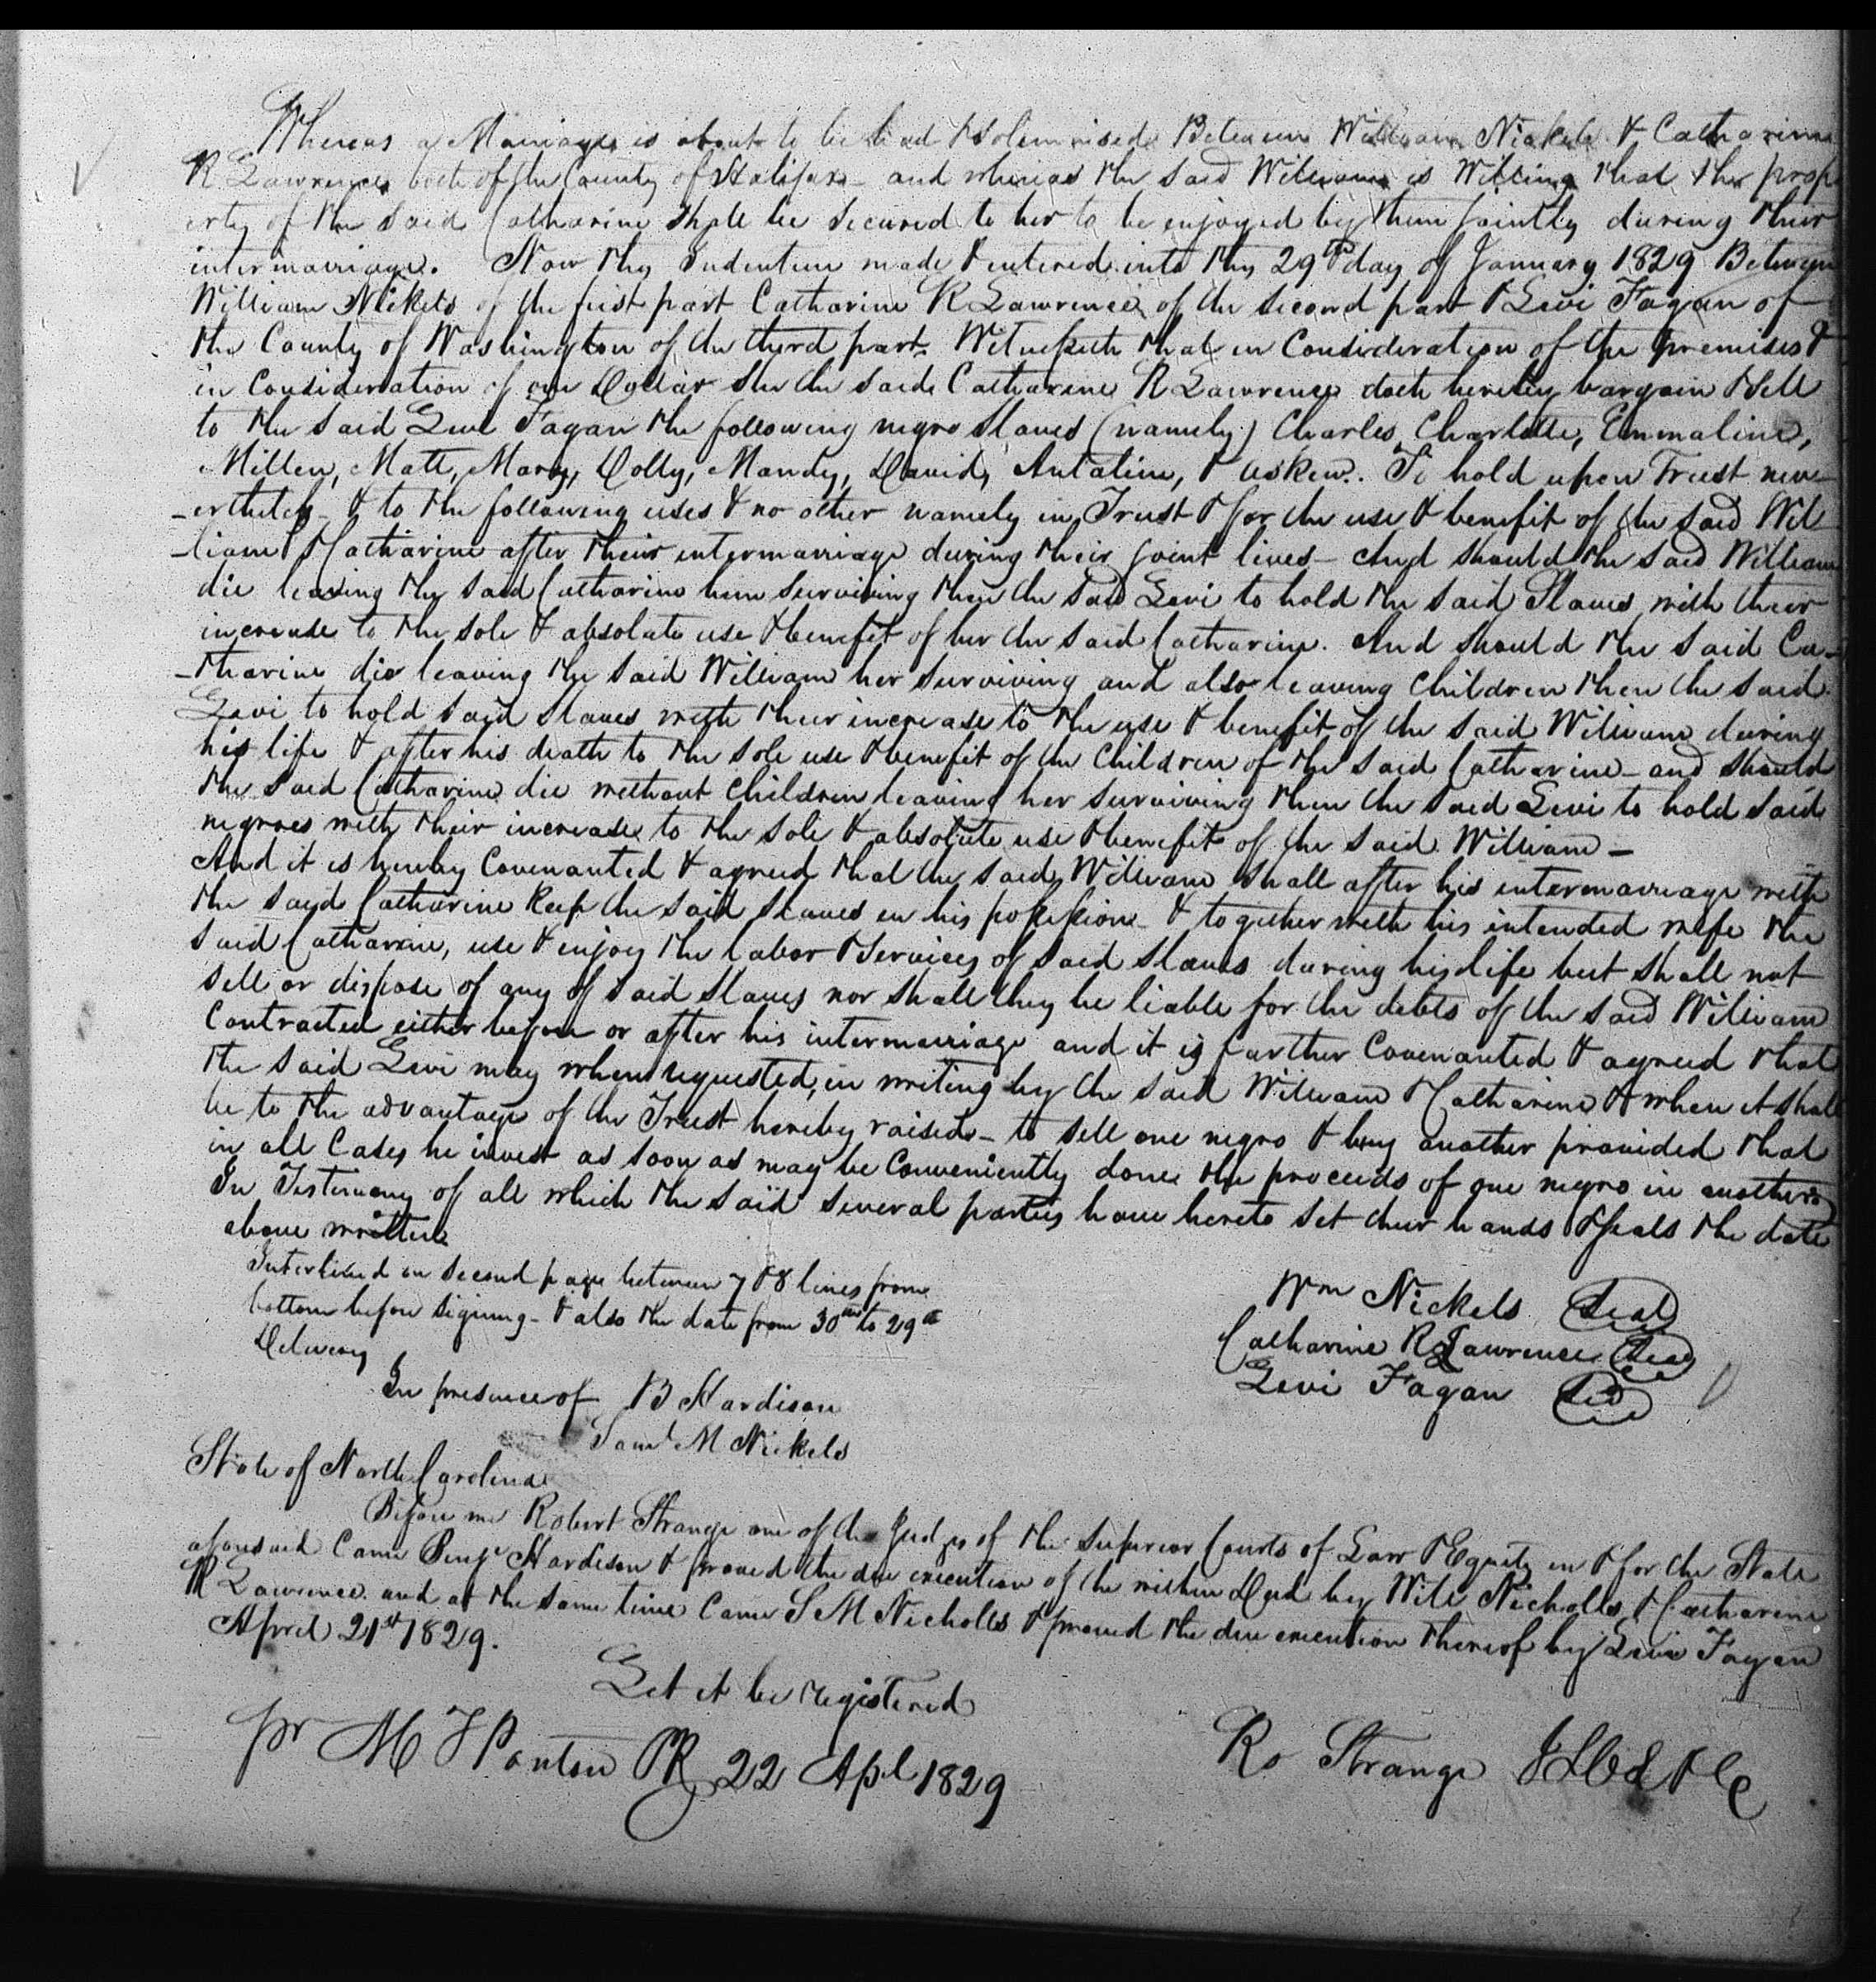 Whereas a Marriage is about to be had & solemnised Between William Nickels & Catharine
R Lawrence both of the County of Halifax - and whereas the said William is Willing that the prop
erty of the said Catharine shall be secured to her to be enjoyed by them jointly during their
intermarriage. Now this Indenture made & entered into this 29th day of January 1829 Between
William Nickels of the first part Catharine R Lawrence of the second part & Levi Fagan of
the County of Washington of the third part. Witnesseth that in Consideration of the premises &
in Consideration of one Dollar she the said Catharine R Lawrence doth hereby bargain & sell
to the said Levi Fagan the following negro Slaves (namely) Charles, Charlotte, Emmaline,
Millen, Matt, Mary, Dolly, Mandy, David, Antaline, & Askew. To hold upon Trust nev-
-ertheless & to the following uses & no other namely in Trust & for the use & benefit of the said Wil
-liam & Catharine after their intermarriage during their joint lives - And should the said William
die leaving the said Catharine him surviving then the said Levi to hold the said Slaves with their
increase to the sole & absolute use & benefit of her the said Catharine. And should the said Ca-
-tharine die leaving the said William her surviving and also leaving Children then the said
Levi to hold said slaves with their increase to the use & benefit of the said William during
his life & after his death to the sole use & benefit of the Children of the said Catharine - and should
the said Catharine die without Children leaving her surviving then the said Levi to hold said
negroes with their increase to the sole & absolute use & benefit of the said William -
And it is hereby Covenanted & agreed that the said William shall after his intermarriage with
the said Catharine Keep the said slaves in his possession & together with his intended wife the
said Catharine, use & enjoy the labor & services of said slaves during his life but shall not
sell or dispose of any of said slaves nor shall they be liable for the debts of the said William
Contracted either before or after his intermarriage and it is further Covenanted & agreed that
the said Levi may when requested, in writing by the said William & Catharine & when it shall
be to the advantage of the Trust hereby raised - to sell one negro & buy another provided that
in all Cases he invest as soon as may be Conveniently done the proceeds of one negro in another
In Testimony of all which the said several parties have hereto set their hands & seals the date
above written
Interlined on second page between 7 & 8 lines from
bottom before signing - & also the date from 30th to 29th
Delivery
Wm Nickels Seal
Catharine R Lawrence Seal
Levi Fagan Seal
In presence of B Hardison
Saml M Nickels
State of North Carolina
Before me Robert Strange one of the Judges of the Superior Courts of Law & Equity in & for the State
aforesaid Came Benjn Hardison & proved the due execution of the within Deed by Will Nicholls & Catharine
R Lawrence and at the same time Came S M Nicholls & proved the due execution thereof by Levi Fagan
April 21st 1829.
Let it be registered
Ro Strange
pr M T Ponton PR 22 Apl 1829